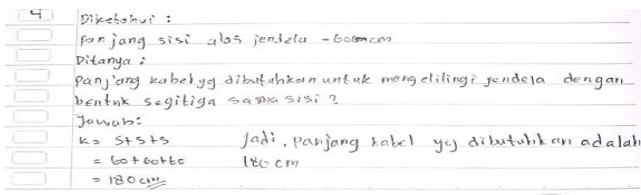 4 Diketahui :
Panjang sisi alas jendela - 60 cm
Ditanya :
Panjang kabel yg dibutuhkan untuk mengelilingi jendela dengan
bentuk segitiga sama sisi ?
Jawab:
K = S+S+S Jadi, panjang kabel yg dibutuhkan adalah
= 60+60+60 180 cm
= 180 cm